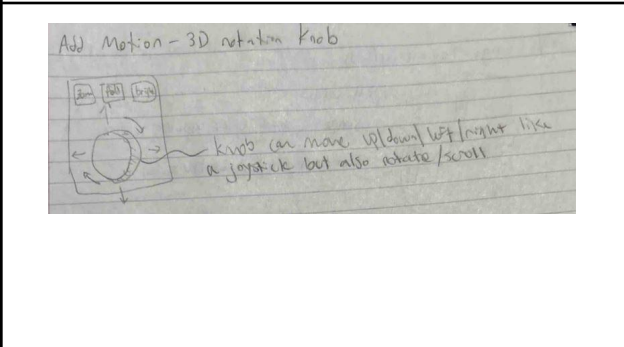 Add Motion - 3D rotation Knob
Zoom
knob can move up/down/left/right like
a joystick but also rotate/scroll